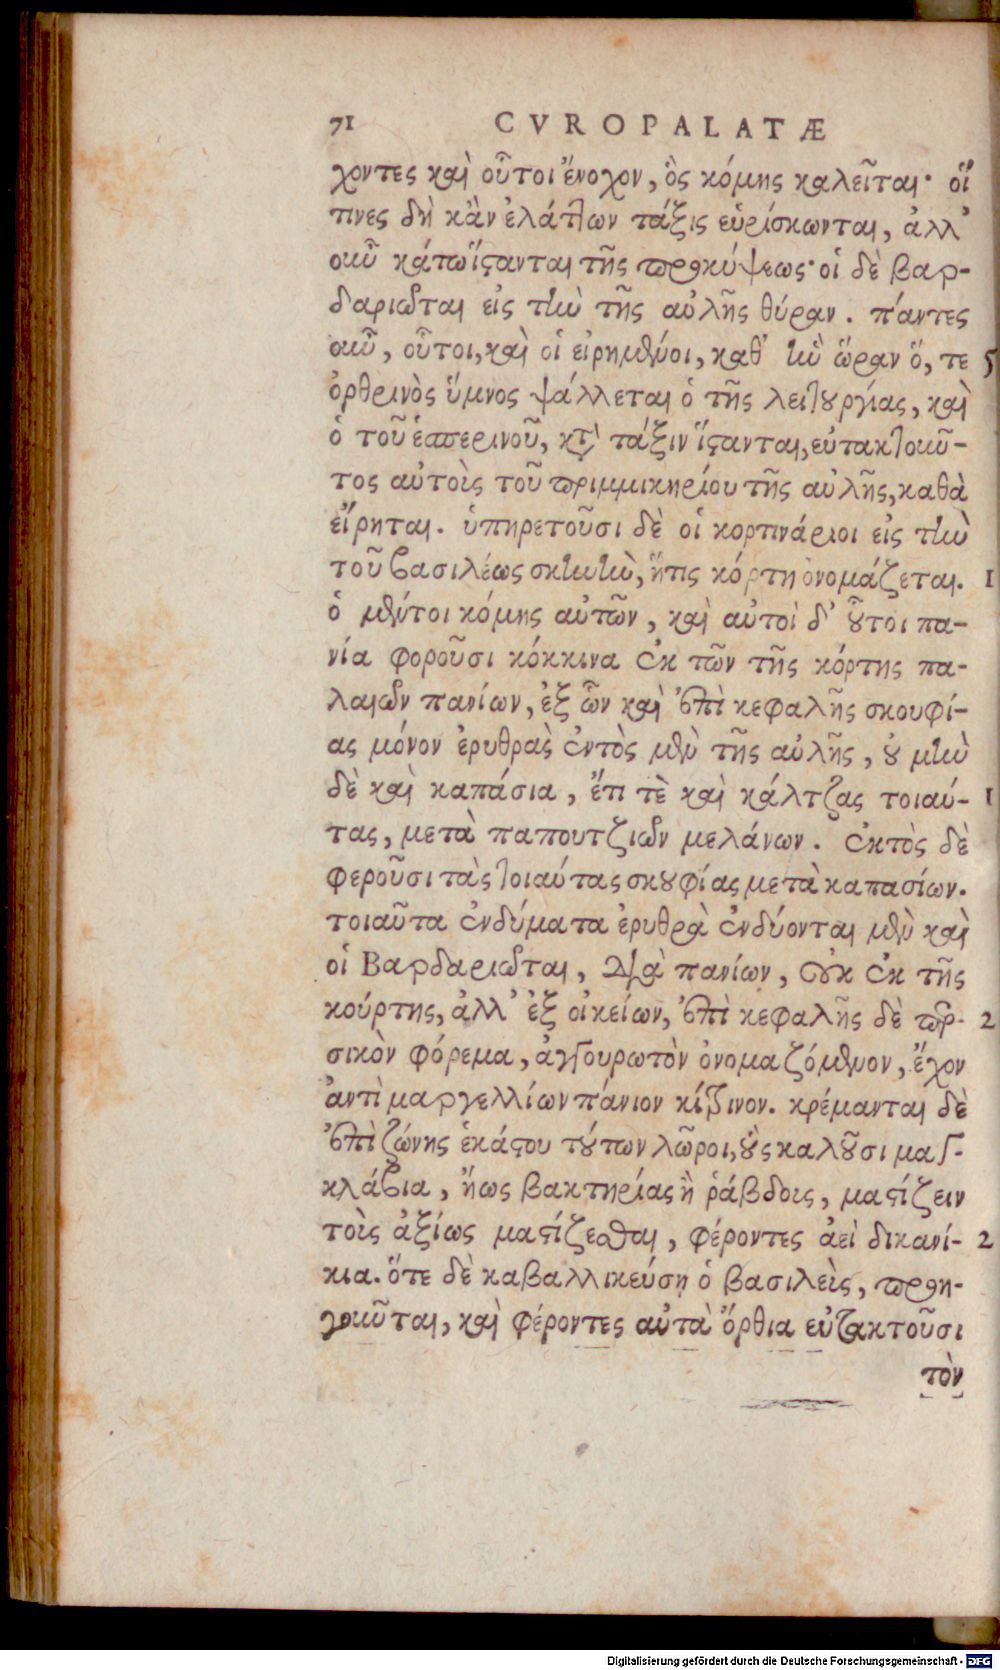 71 CVROPALATÆ
χοντες καὶ οὗτοι ἔνοχον, ὃς κόμης καλεῖται· οἵ
τινες δὴ κἂν ἐλάτλων τάξις εὑρίσκωνται, ἀλλ'
οιιῦ κάτω ἵστανται τῆς προκύψεως· οἱ δὲ βαρ-
δαριῶται εἰς τὴν τῆς αὐλῆς θύραν. πάντες
οὖν, οὗτοι, καὶ οἱ εἰρημένοι, καθ' ἣν ὥραν ὅ, τε 5
ὀρθρινὸς ὕμνος ψάλλεται ὁ τῆς λειτουργίας, καὶ
ὁ τοῦ ἑσπερινοῦ, κατὰ τάξιν ἵστανται, εὐτακτοῦν-
τος αὐτοὶς τοῦ πριμμικηρίου τῆς αὐλῆς, καθὰ
εἴρηται. ὑπηρετοῦσι δὲ οἱ κορτινάριοι εἰς τὴν
τοῦ βασιλέως σκηνὴν, ἥτις κόρτη ὀνομάζεται. 1
ὁ μέντοι κόμης αὐτῶν, καὶ αὐτοὶ δ' οὗτοι πα-
νία φοροῦσι κόκκινα ἐκ τῶν τῆς κόρτης πα-
λαιῶν πανίων, ἐξ ὧν καὶ ἐπὶ κεφαλῆς σκουφί-
ας μόνον ἐρυθρας ἐντὸς μὲν τῆς αὐλῆς, οὐ μὴν
δὲ καὶ καπάσια, ἔτι τὲ καὶ κάλτζας τοιαύ- 1
τας, μετὰ παπουτζιῶν μελάνων. ἐκτὸς δὲ
φεροῦσι τὰς τοιαύτας σκουφίας μετὰ καπασίων.
τοιαῦτα ἐνδύματα ἐρυθρὰ ἐνδύονται μὲν καὶ
οἱ Βαρδαριῶται, διὰ πανίων, οὐκ ἐκ τῆς
κούρτης, ἀλλ' ἐξ οἰκείων, ἐπὶ κεφαλῆς δὲ περ- 2
σικὸν φόρεμα, ἀγγουρωτὸν ὀνομαζόμενον, ἔχον
ἀντὶ μαργελλίων πάνιον κίτρινον. κρέμανται δὲ
ἐπὶ ζώνης ἑκάστου τούτων λῶροι, οὓς καλοῦσι μαγ-
κλάβια, ἤως βακτηρίας ἢ ῥάβδοις, μαστίζειν
τοὶς ἀξίως μαστίζεσθαι, φέροντες ἀεὶ δικανί- 2
κια. ὅτε δὲ καβαλλικεύσῃ ὁ βασιλεὶς, προη-
γοῦνται, καὶ φέροντες αὐτὰ ὄρθια εὐτακτοῦσι
τὸν
Digitalisierung gefördert durch die Deutsche Forschungsgemeinschaft - DFG